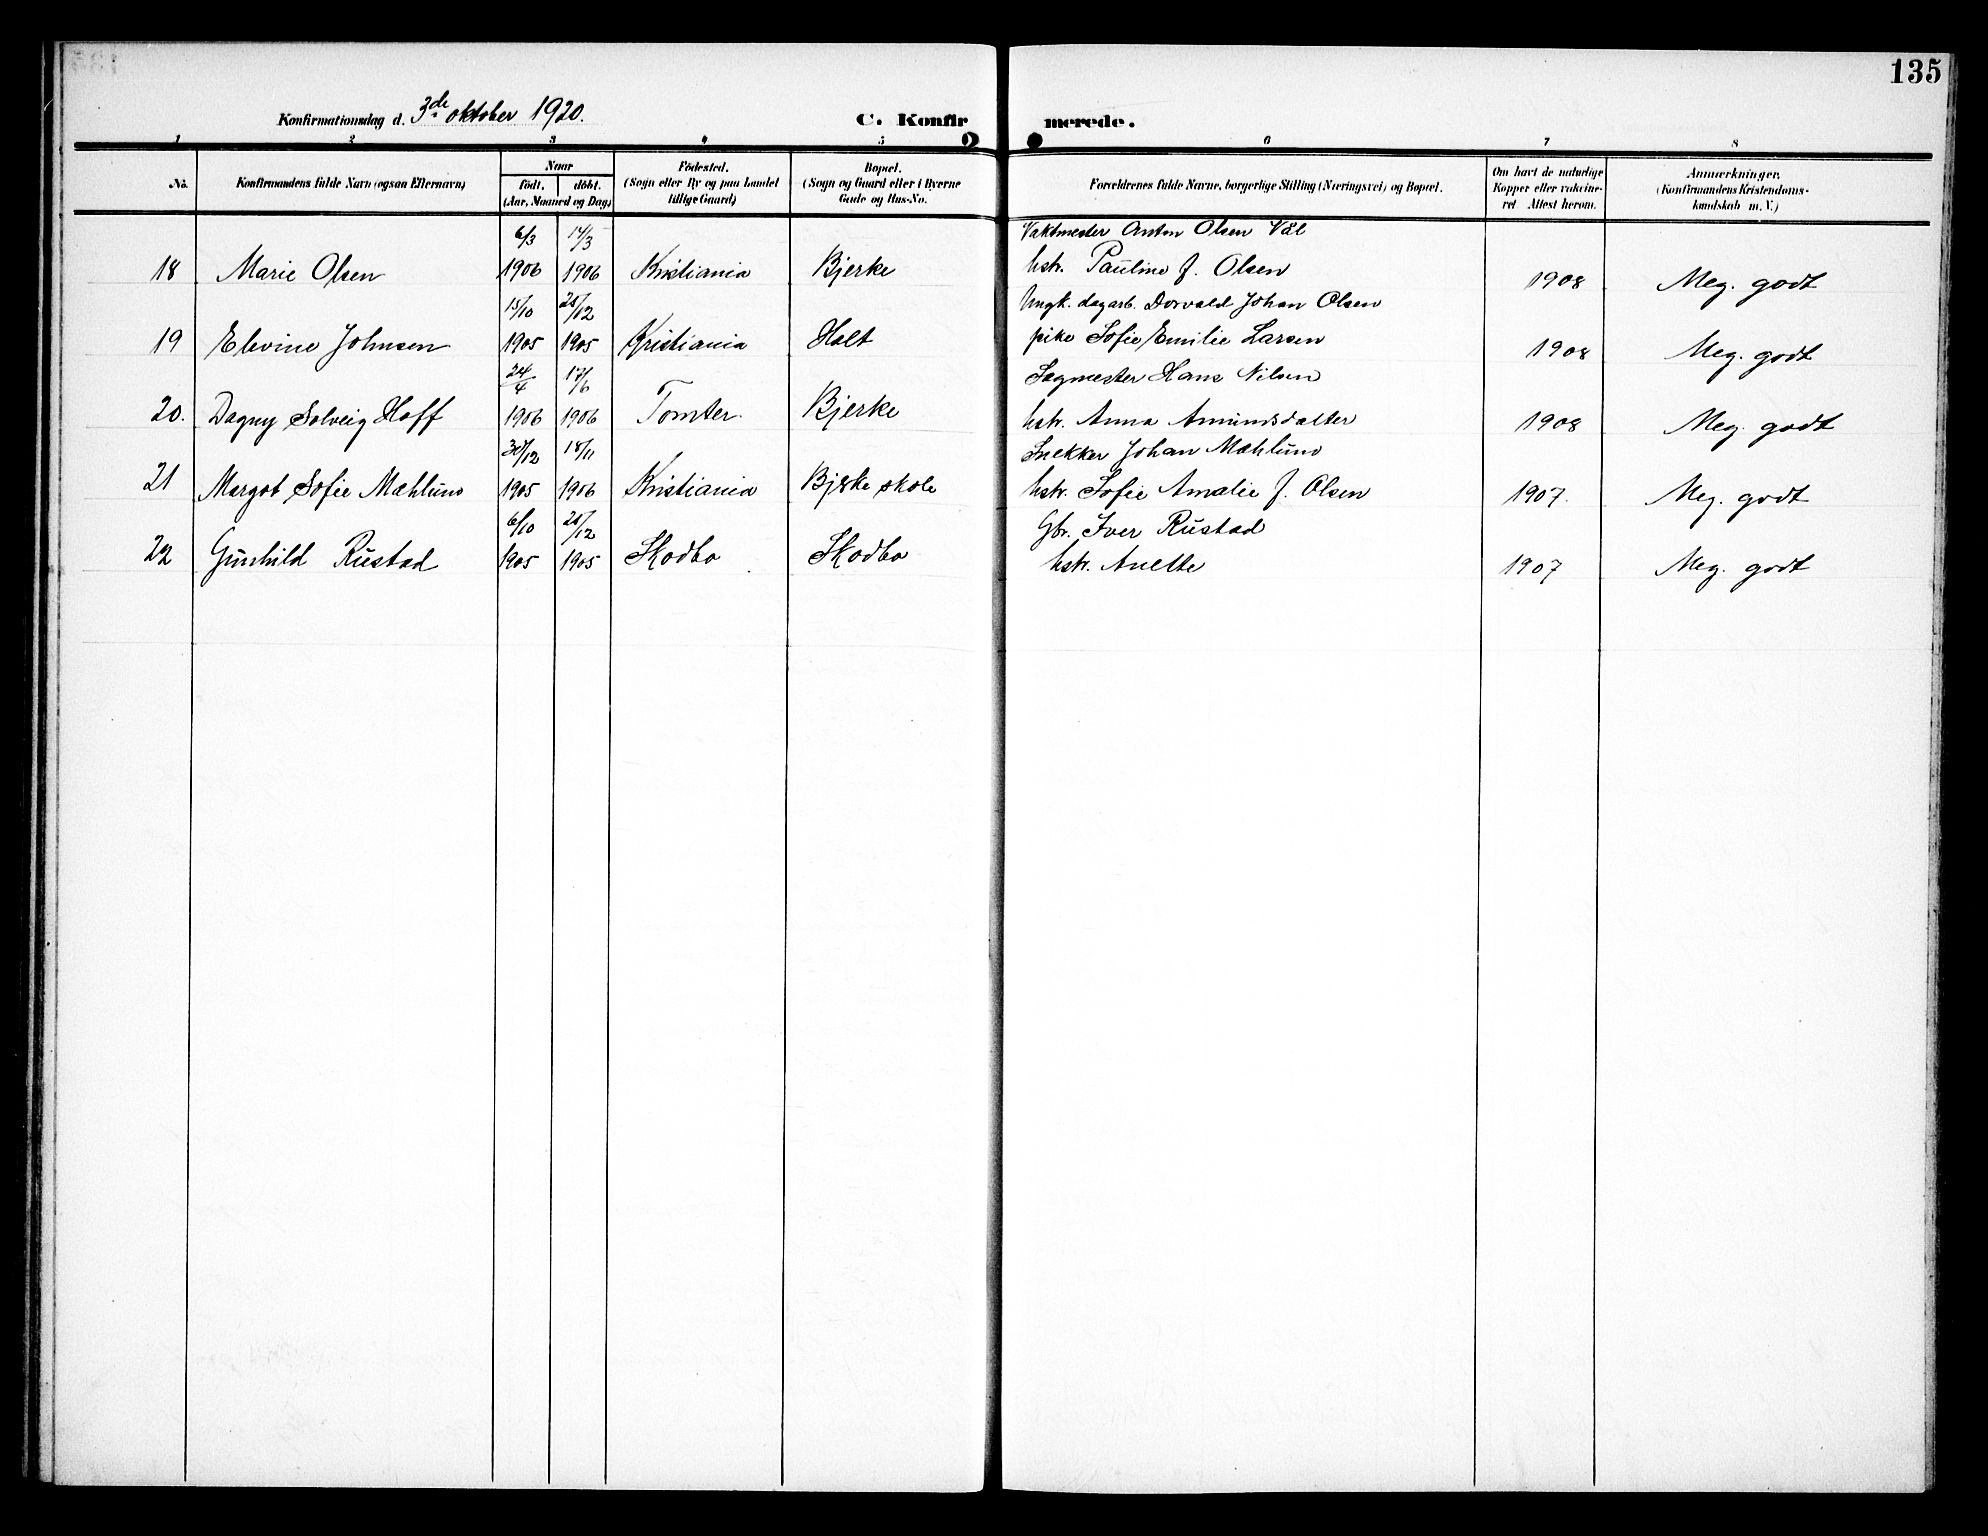 135
Konfirmationsdag d. 3de oktober 1920.
C. Konfirmerede.
1 2 3 4 5 6 7 8
No. Konfirmandens fulde Navn (ogsaa Efternavn) Naar födt. döbt. (Aar, Maaned og Dag) Födested. (Sogn eller By og paa Landet tillige Gaard) Bopæl. (Sogn og Gaard eller i Byerne Gade og Hus-No. Forældrenes fulde Navne, borgerlige Stilling (Næringsvei) og Bopæl. Om havt de naturlige Kopper eller vakcineret Attest herom. Anmærkninger. (Konfirmandens Kristendomskundskab m. V.)
6/3 14/3 Vaktmester Anton Olsen Vål
18 Marie Olsen 1906 1906 Kristiania Bjerke hstr. Pauline f. Olsen 1908 Meg. godt
15/10 25/12 Ungk. dagarb. Dorvald Johan Olsen
19 Elevine Johnsen 1905 1905 Kristiania Holt pike Sofie Emilie Larsen 1908 Meg. godt
24/4 17/6 Sagmester Hans Nilsen
20. Dagny Solveig Hoff 1906 1906 Tomter Bjerke hstr. Anna Amundsdatter 1908 Meg. godt
30/12 18/11 Snekker Johan Mæhlum
21 Margot Sofie Mæhlum 1905 1906 Kristiania Bjerke skole hstr. Sofie Amalie f. Olsen 1907. Meg. godt
6/10 25/12 Gbr. Iver Rustad
22 Gunhild Rustad 1905 1905 Skodbo Skodbo hstr. Anette 1907 Meg. godt